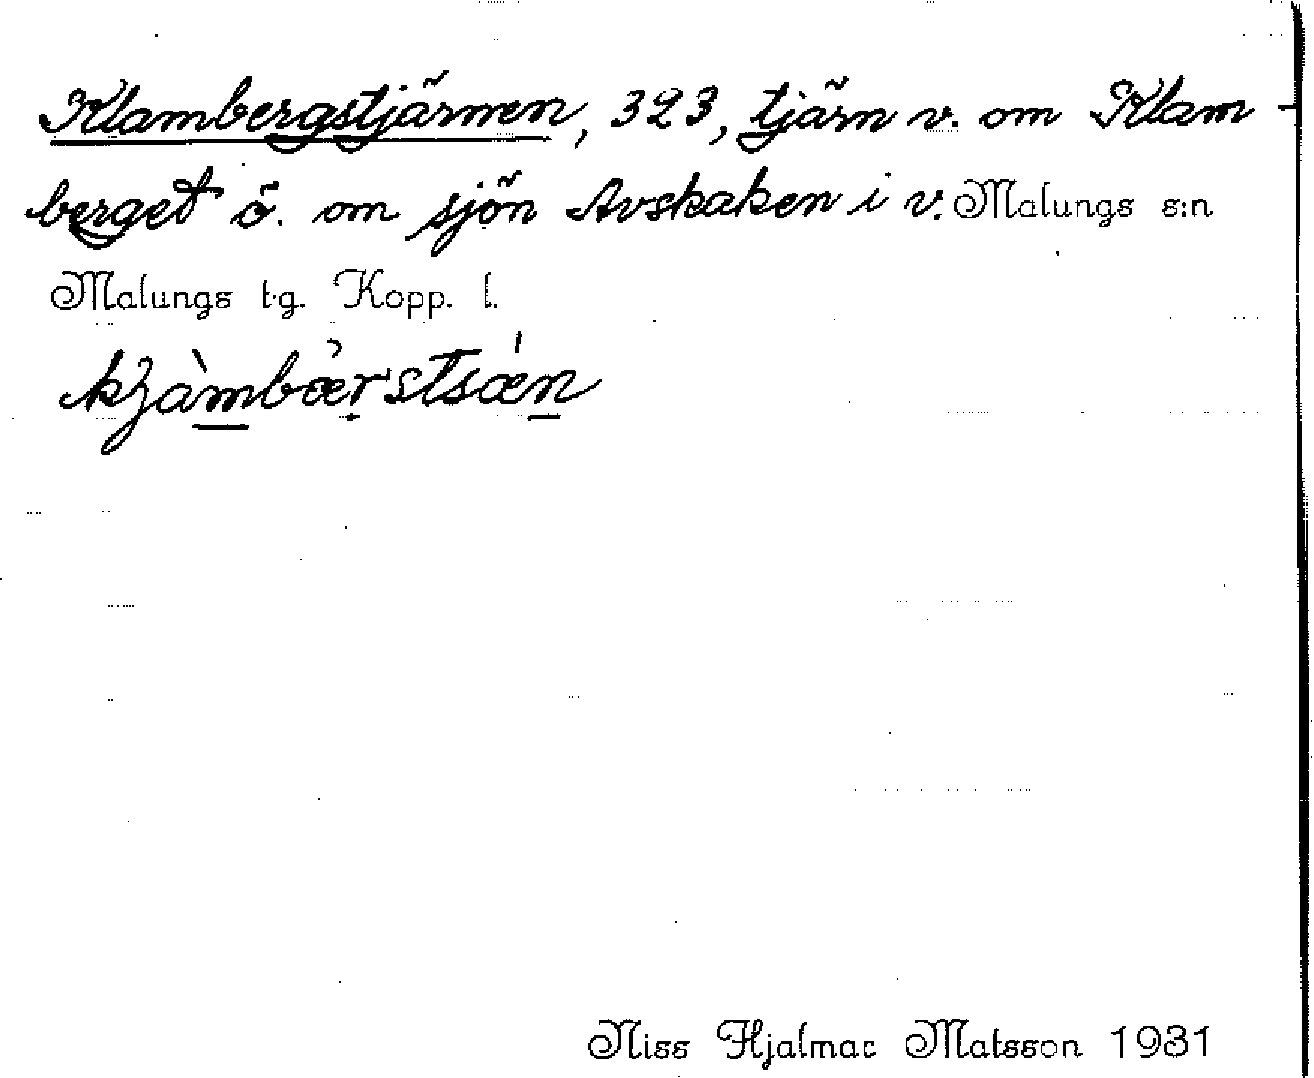 Klambergstjärnen, 323, tjärn v. om Klam-
berget ö. om sjön Avskaken i v. Malungs s:n
Malungs t.g. Kopp. l.
Niss Hjalmar Matsson 1931